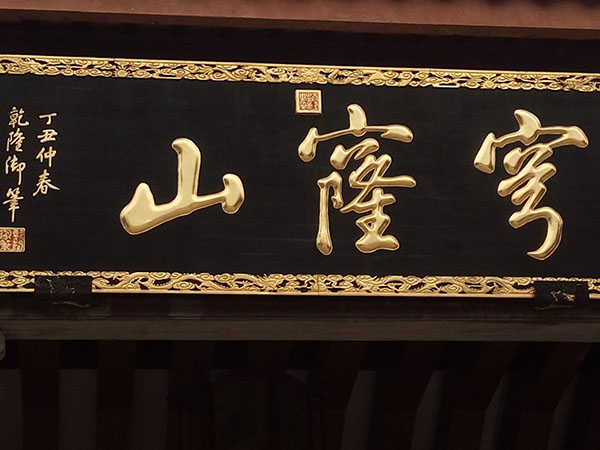 穹窿山
丁丑仲春
乾隆御筆